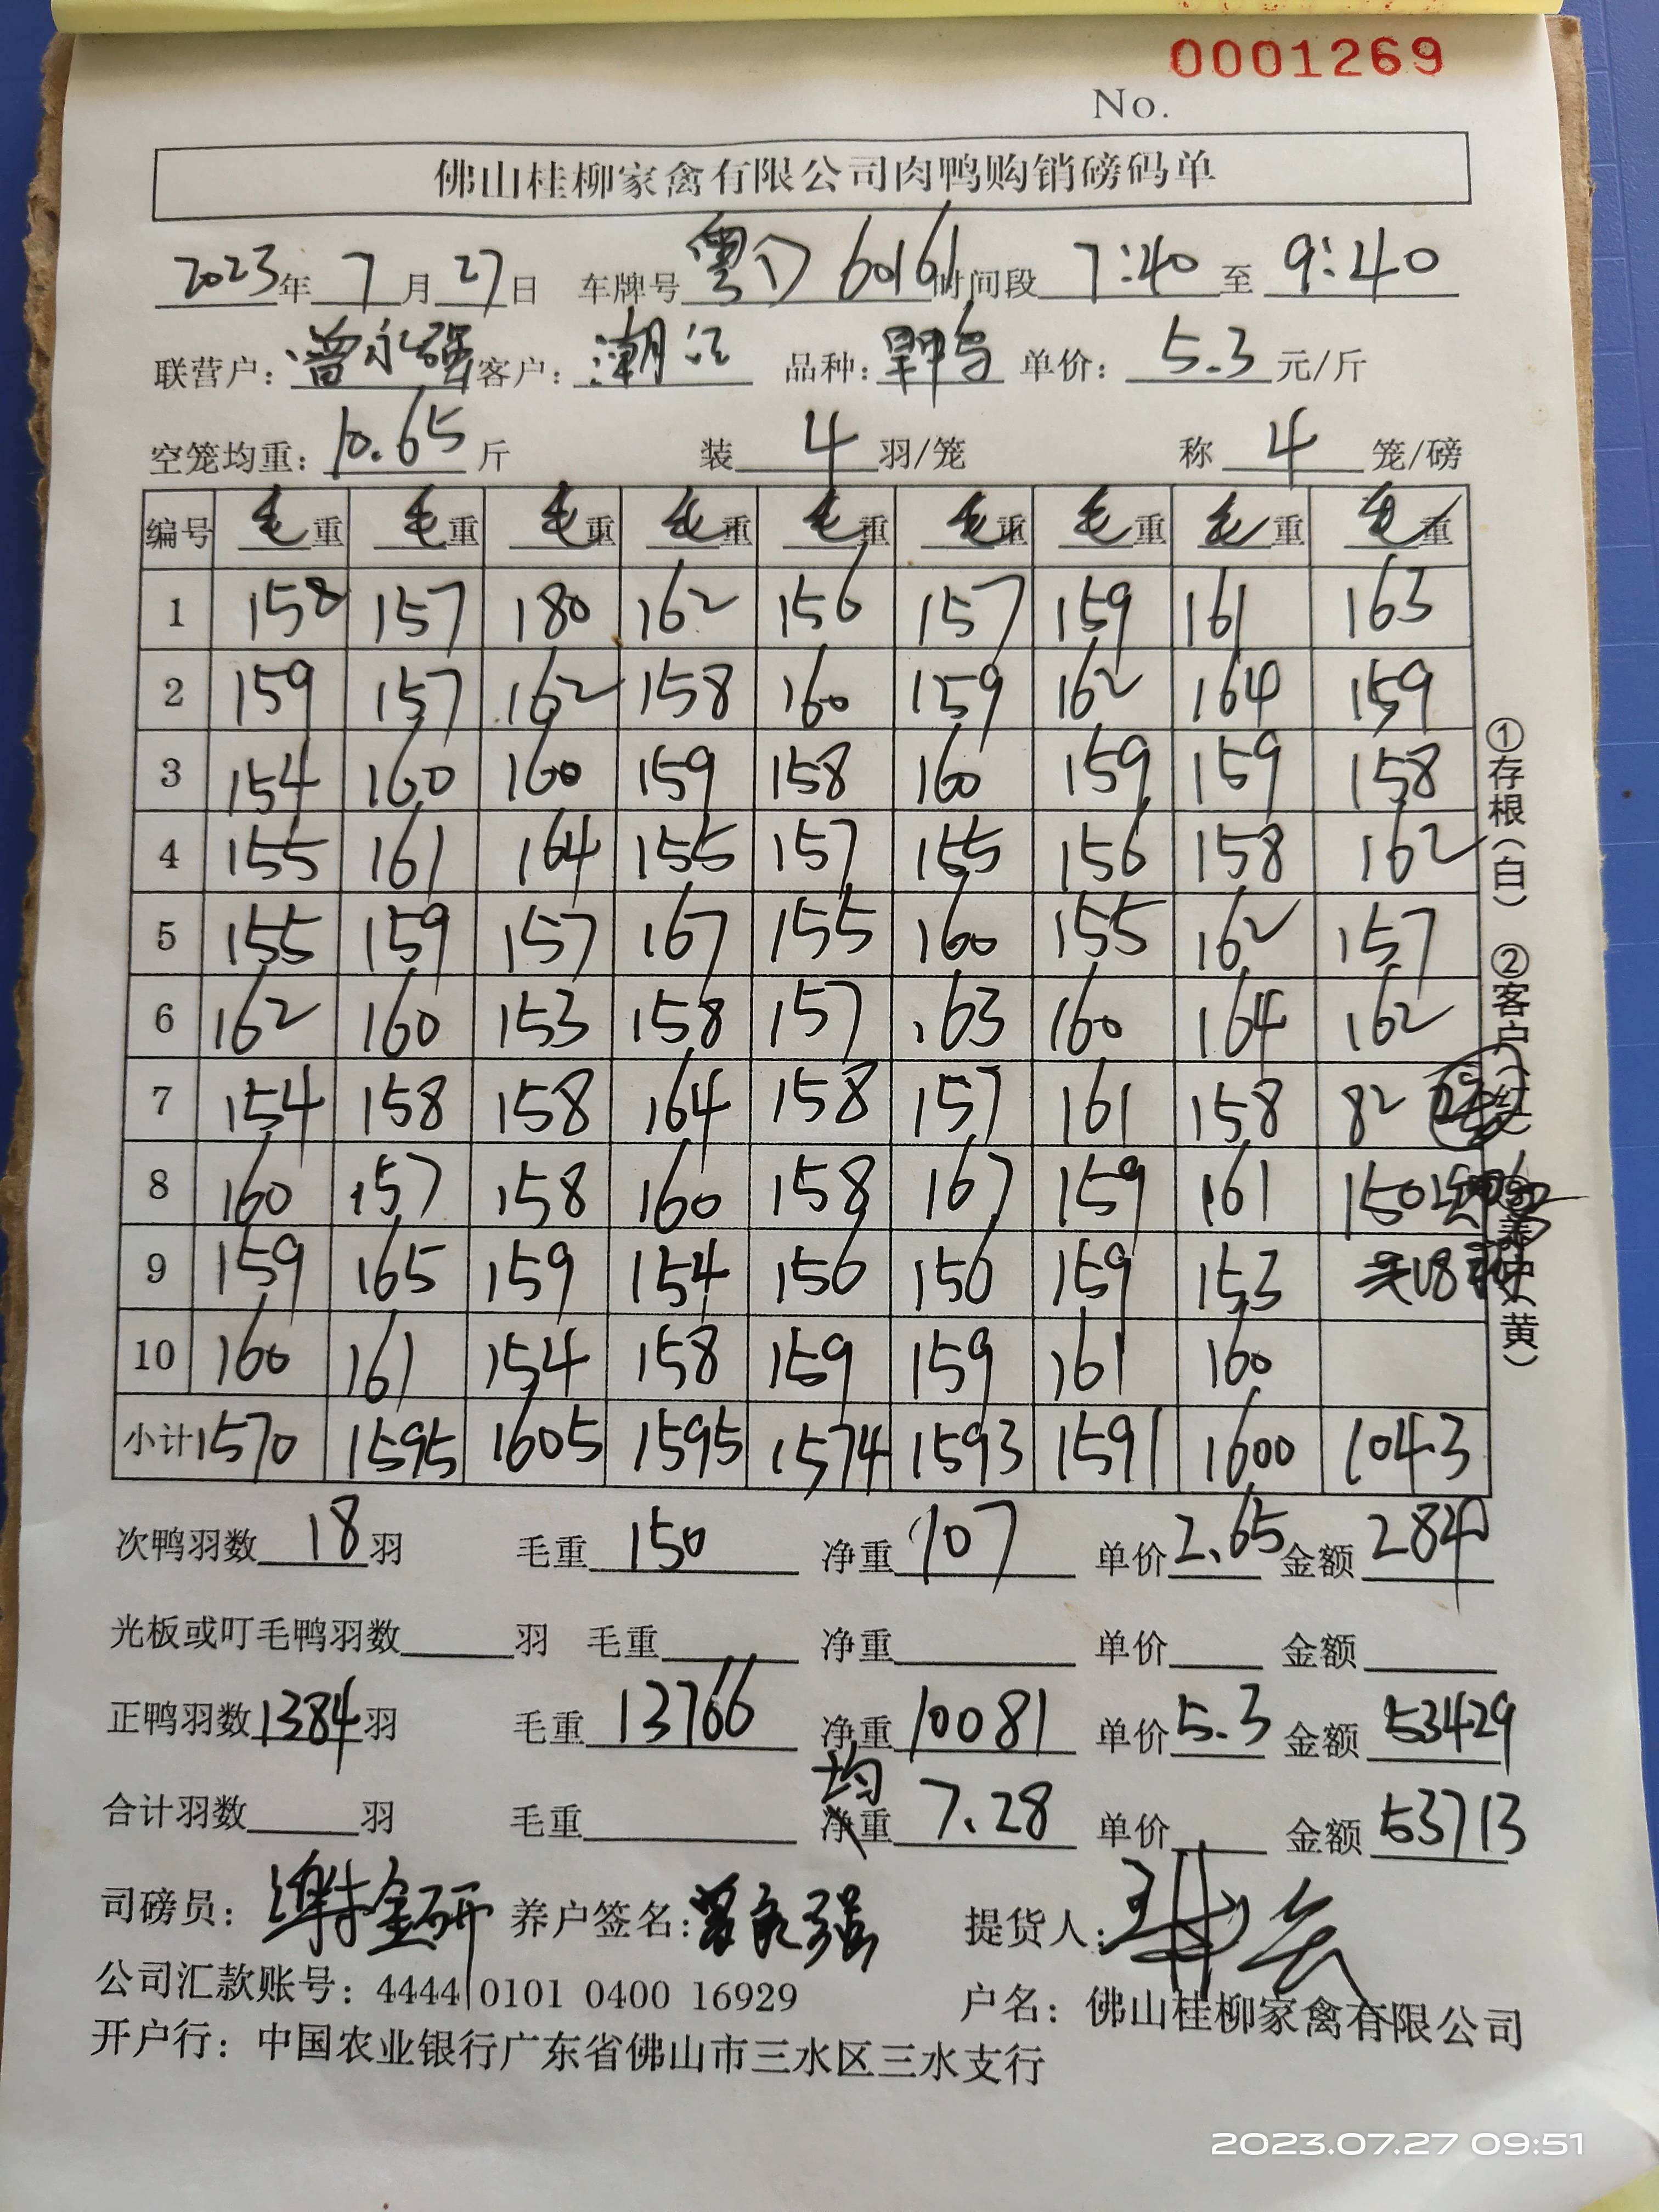 0001269
No.
佛山桂柳家禽有限公司肉鸭购销磅码单
2023年 7月 27日 车牌号 粤 6016 时间段 7:40 至 9:40
联营户: 曾永强 客户: 潮江 品种: 旱鸭 单价: 5.3 元/斤
空笼均重: 10.65 斤 装 4 羽/笼 称 4 笼/磅
编号 毛重 毛重 毛重 毛重 毛重 毛重 毛重 毛重 毛重
1 158 157 180 162 156 157 159 161 163
2 159 157 162 158 160 159 162 164 159
3 154 160 160 159 158 160 159 159 158
4 155 161 164 155 157 155 156 158 162
5 155 159 157 167 155 160 155 162 157
6 162 160 153 158 157 163 160 164 162
7 154 158 158 164 158 157 161 158 82
8 160 157 158 160 158 167 159 161 150
9 159 165 159 154 156 156 159 153 18
10 160 161 154 158 159 159 161 160
小计 1570 1595 1605 1595 1574 1593 1591 1600 1043
①存根(白) ②客户(红) ③养户(黄)
次鸭羽数 18 羽 毛重 150 净重 107 单价 2.65 金额 284
光板或叮毛鸭羽数 羽 毛重 净重 单价 金额
正鸭羽数 1384 羽 毛重 13766 净重 10081 单价 5.3 金额 53429
合计羽数 羽 毛重 均重 7.28 单价 金额 53713
司磅员: 谢金研 养户签名: 曾永强 提货人:
公司汇款账号: 4444 0101 0400 16929 户名: 佛山桂柳家禽有限公司
开户行: 中国农业银行广东省佛山市三水区三水支行
2023.07.27 09:51